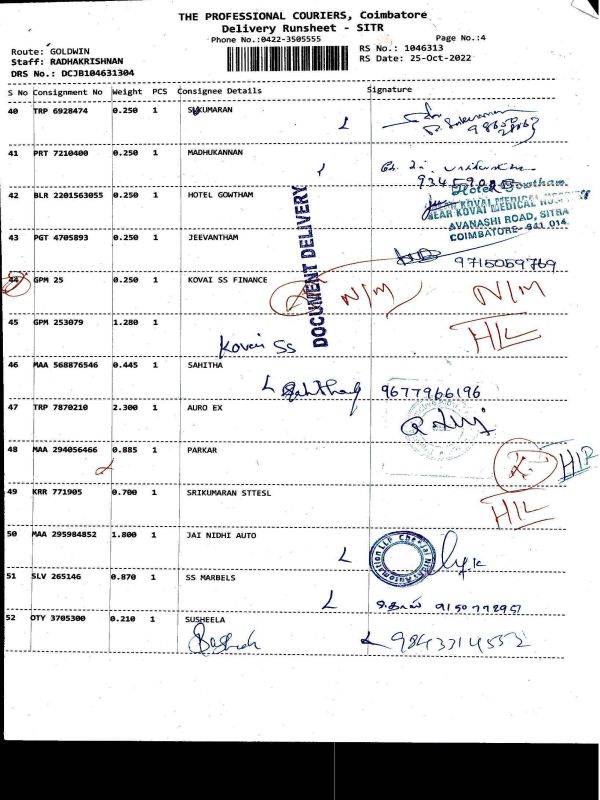 THE PROFESSIONAL COURIERS, Coimbatore
Delivery Runsheet - SITR
Phone No.:0422-3505555
Page No.:4
Route: GOLDWIN
RS No.: 1046313
Staff: RADHAKRISHNAN
RS Date: 25-Oct-2022
DRS No.: DCJB104631304
S No Consignment No Weight PCS Consignee Details Signature
40 TRP 6928474 0.250 1 SUKUMARAN
41 PRT 7210400 0.250 1 MADHUKANNAN
42 BLR 2201563055 0.250 1 HOTEL GOWTHAM
Hotel Gowtham.
GEAR KOVAI MEDICAL
AVANASHI ROAD, SITRA
COIMBATORE- 641 014
DOCUMENT DELIVERY
43 PGT 4705893 0.250 1 JEEVANTHAM
9715059769
44 GPM 25 0.250 1 KOVAI SS FINANCE
N/M N/M
45 GPM 253079 1.280 1
Kovai SS
H/L
46 MAA 568876546 0.445 1 SAHITHA
9677966196
47 TRP 7870210 2.300 1 AURO EX
48 MAA 294056466 0.885 1 PARKAR
49 KRR 771905 0.700 1 SRIKUMARAN STTESL
H/L
50 MAA 295984852 1.800 1 JAI NIDHI AUTO
51 SLV 265146 0.870 1 SS MARBELS
52 OTY 3705300 0.210 1 SUSHEELA
9843314552